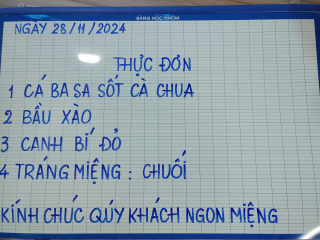 BẢNG HỌC NHÓM
NGÀY 28/11/2024
THỰC ĐƠN
1 CÁ BA SA SỐT CÀ CHUA
2 BẦU XÀO
3 CANH BÍ ĐỎ
4 TRÁNG MIỆNG : CHUỐI
KÍNH CHÚC QÚY KHÁCH NGON MIỆNG